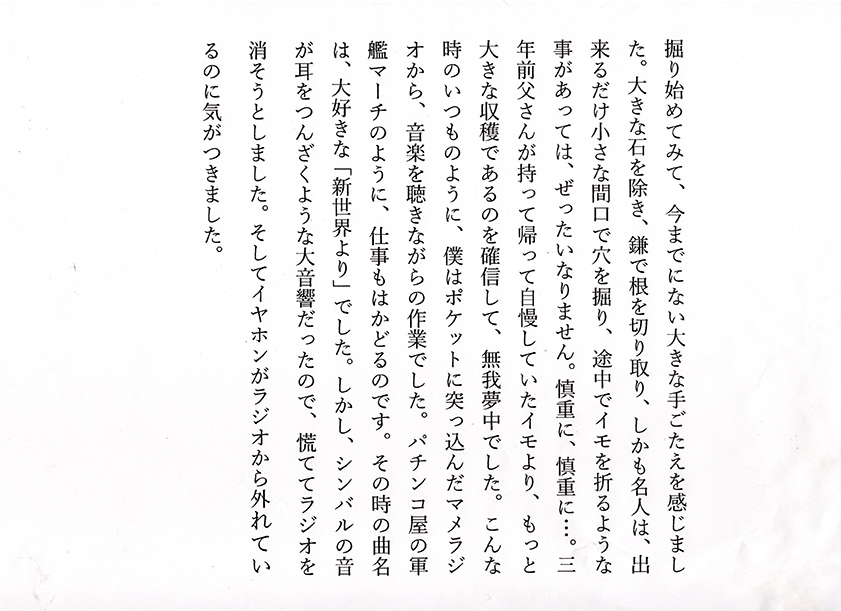 掘り始めてみて、今までにない大きな手ごたえを感じまし
た。大きな石を除き、鎌で根を切り取り、しかも名人は、出
来るだけ小さな間口で穴を掘り、途中でイモを折るような
事があっては、ぜったいなりません。慎重に、慎重に…。三
年前父さんが持って帰って自慢していたイモより、もっと
大きな収穫であるのを確信して、無我夢中でした。こんな
時のいつものように、僕はポケットに突っ込んだマメラジ
オから、音楽を聴きながらの作業でした。パチンコ屋の軍
艦マーチのように、仕事もはかどるのです。その時の曲名
は、大好きな「新世界より」でした。しかし、シンバルの音
が耳をつんざくような大音響だったので、慌ててラジオを
消そうとしました。そしてイヤホンがラジオから外れてい
るのに気がつきました。